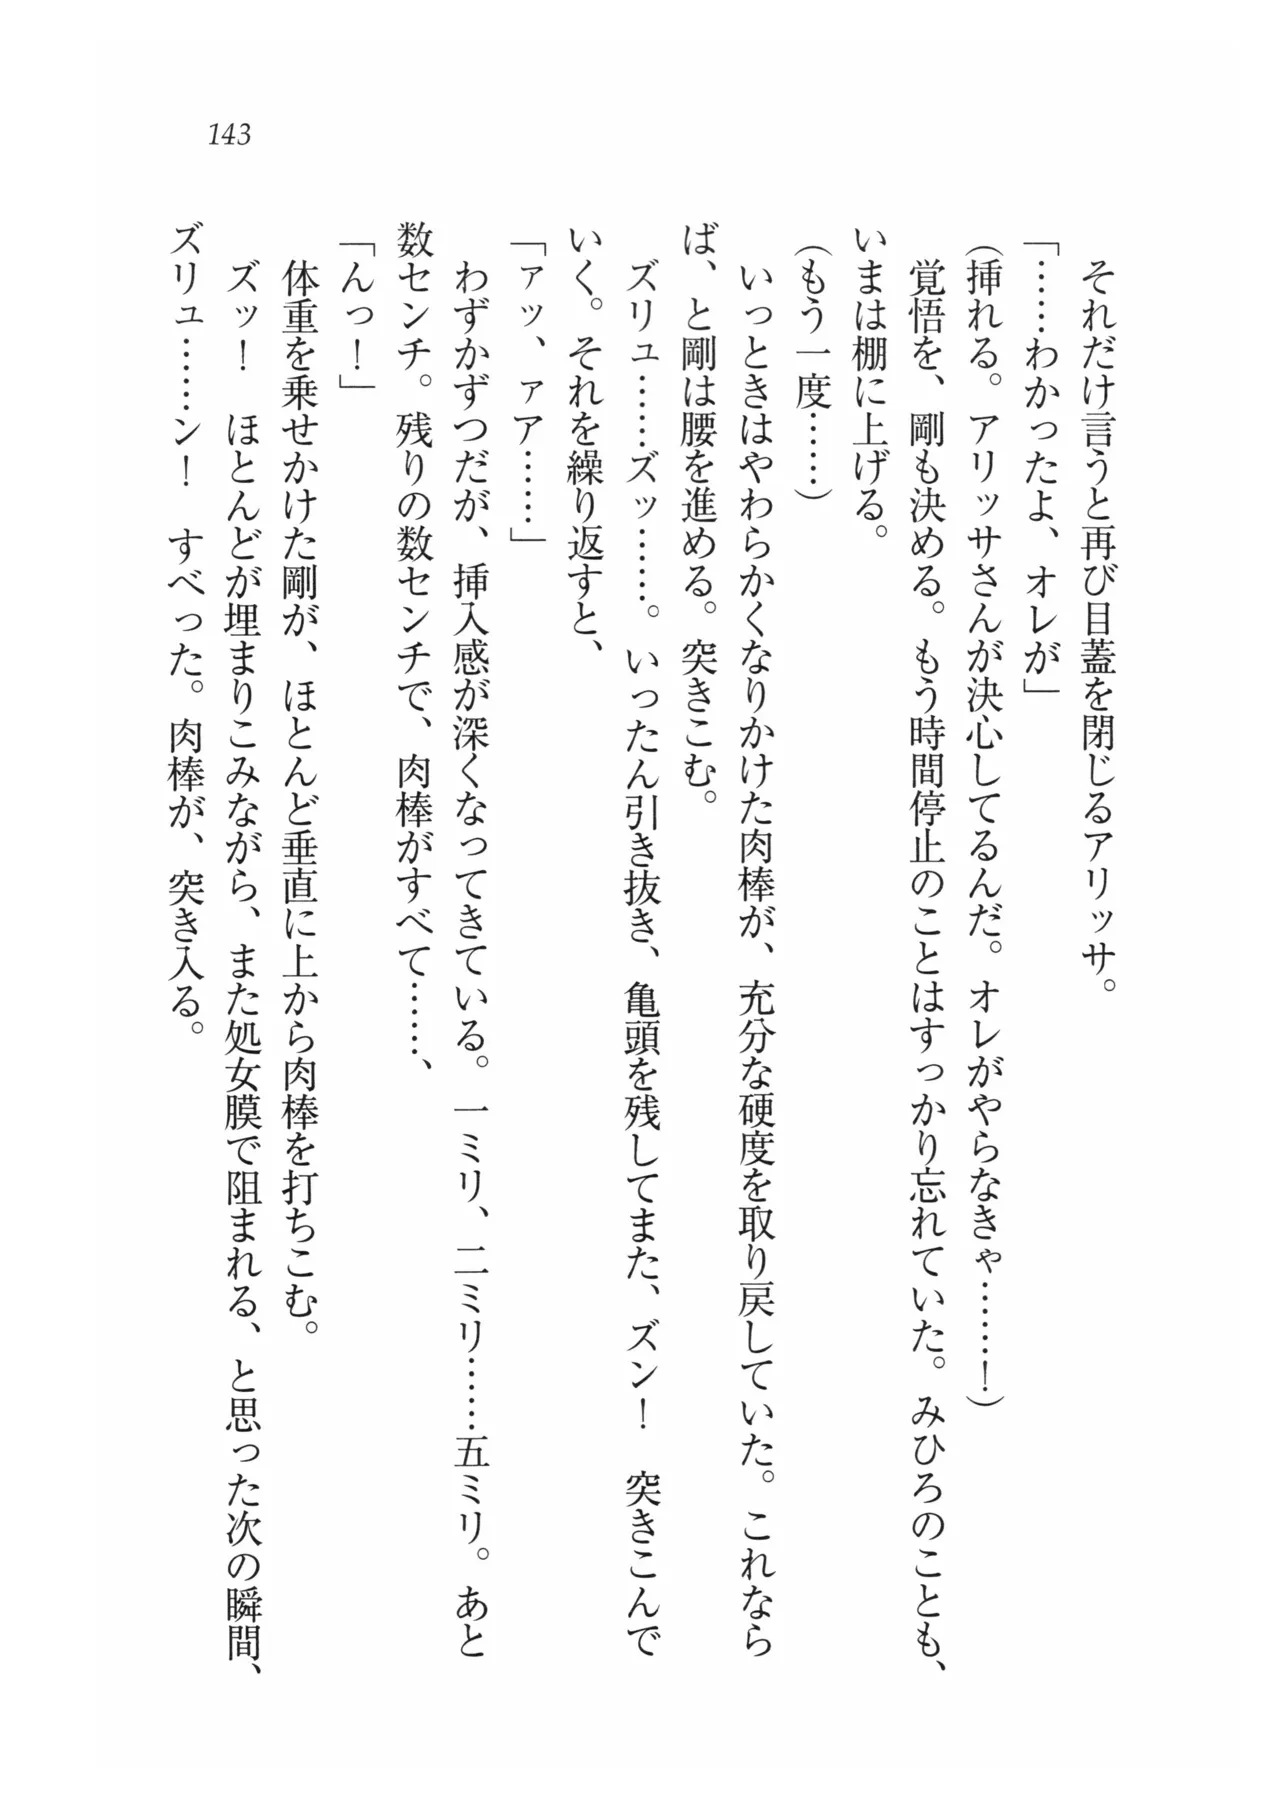 143
それだけ言うと再び目蓋を閉じるアリッサ。
「……わかったよ、オレが」
(挿れる。アリッサさんが決心してるんだ。オレがやらなきゃ……！)
覚悟を、剛も決める。もう時間停止のことはすっかり忘れていた。みひろのことも、
いまは棚に上げる。
(もう一度……)
いっときはやわらかくなりかけた肉棒が、充分な硬度を取り戻していた。これなら
ば、と剛は腰を進める。突きこむ。
ズリュ……ズッ……。いったん引き抜き、亀頭を残してまた、ズン！　突きこんで
いく。それを繰り返すと、
「ァッ、ァア……」
わずかずつだが、挿入感が深くなってきている。一ミリ、二ミリ……五ミリ。あと
数センチ。残りの数センチで、肉棒がすべて……、
「んっ！」
体重を乗せかけた剛が、ほとんど垂直に上から肉棒を打ちこむ。
ズッ！　ほとんどが埋まりこみながら、また処女膜で阻まれる、と思った次の瞬間、
ズリュ……ン！　すべった。肉棒が、突き入る。